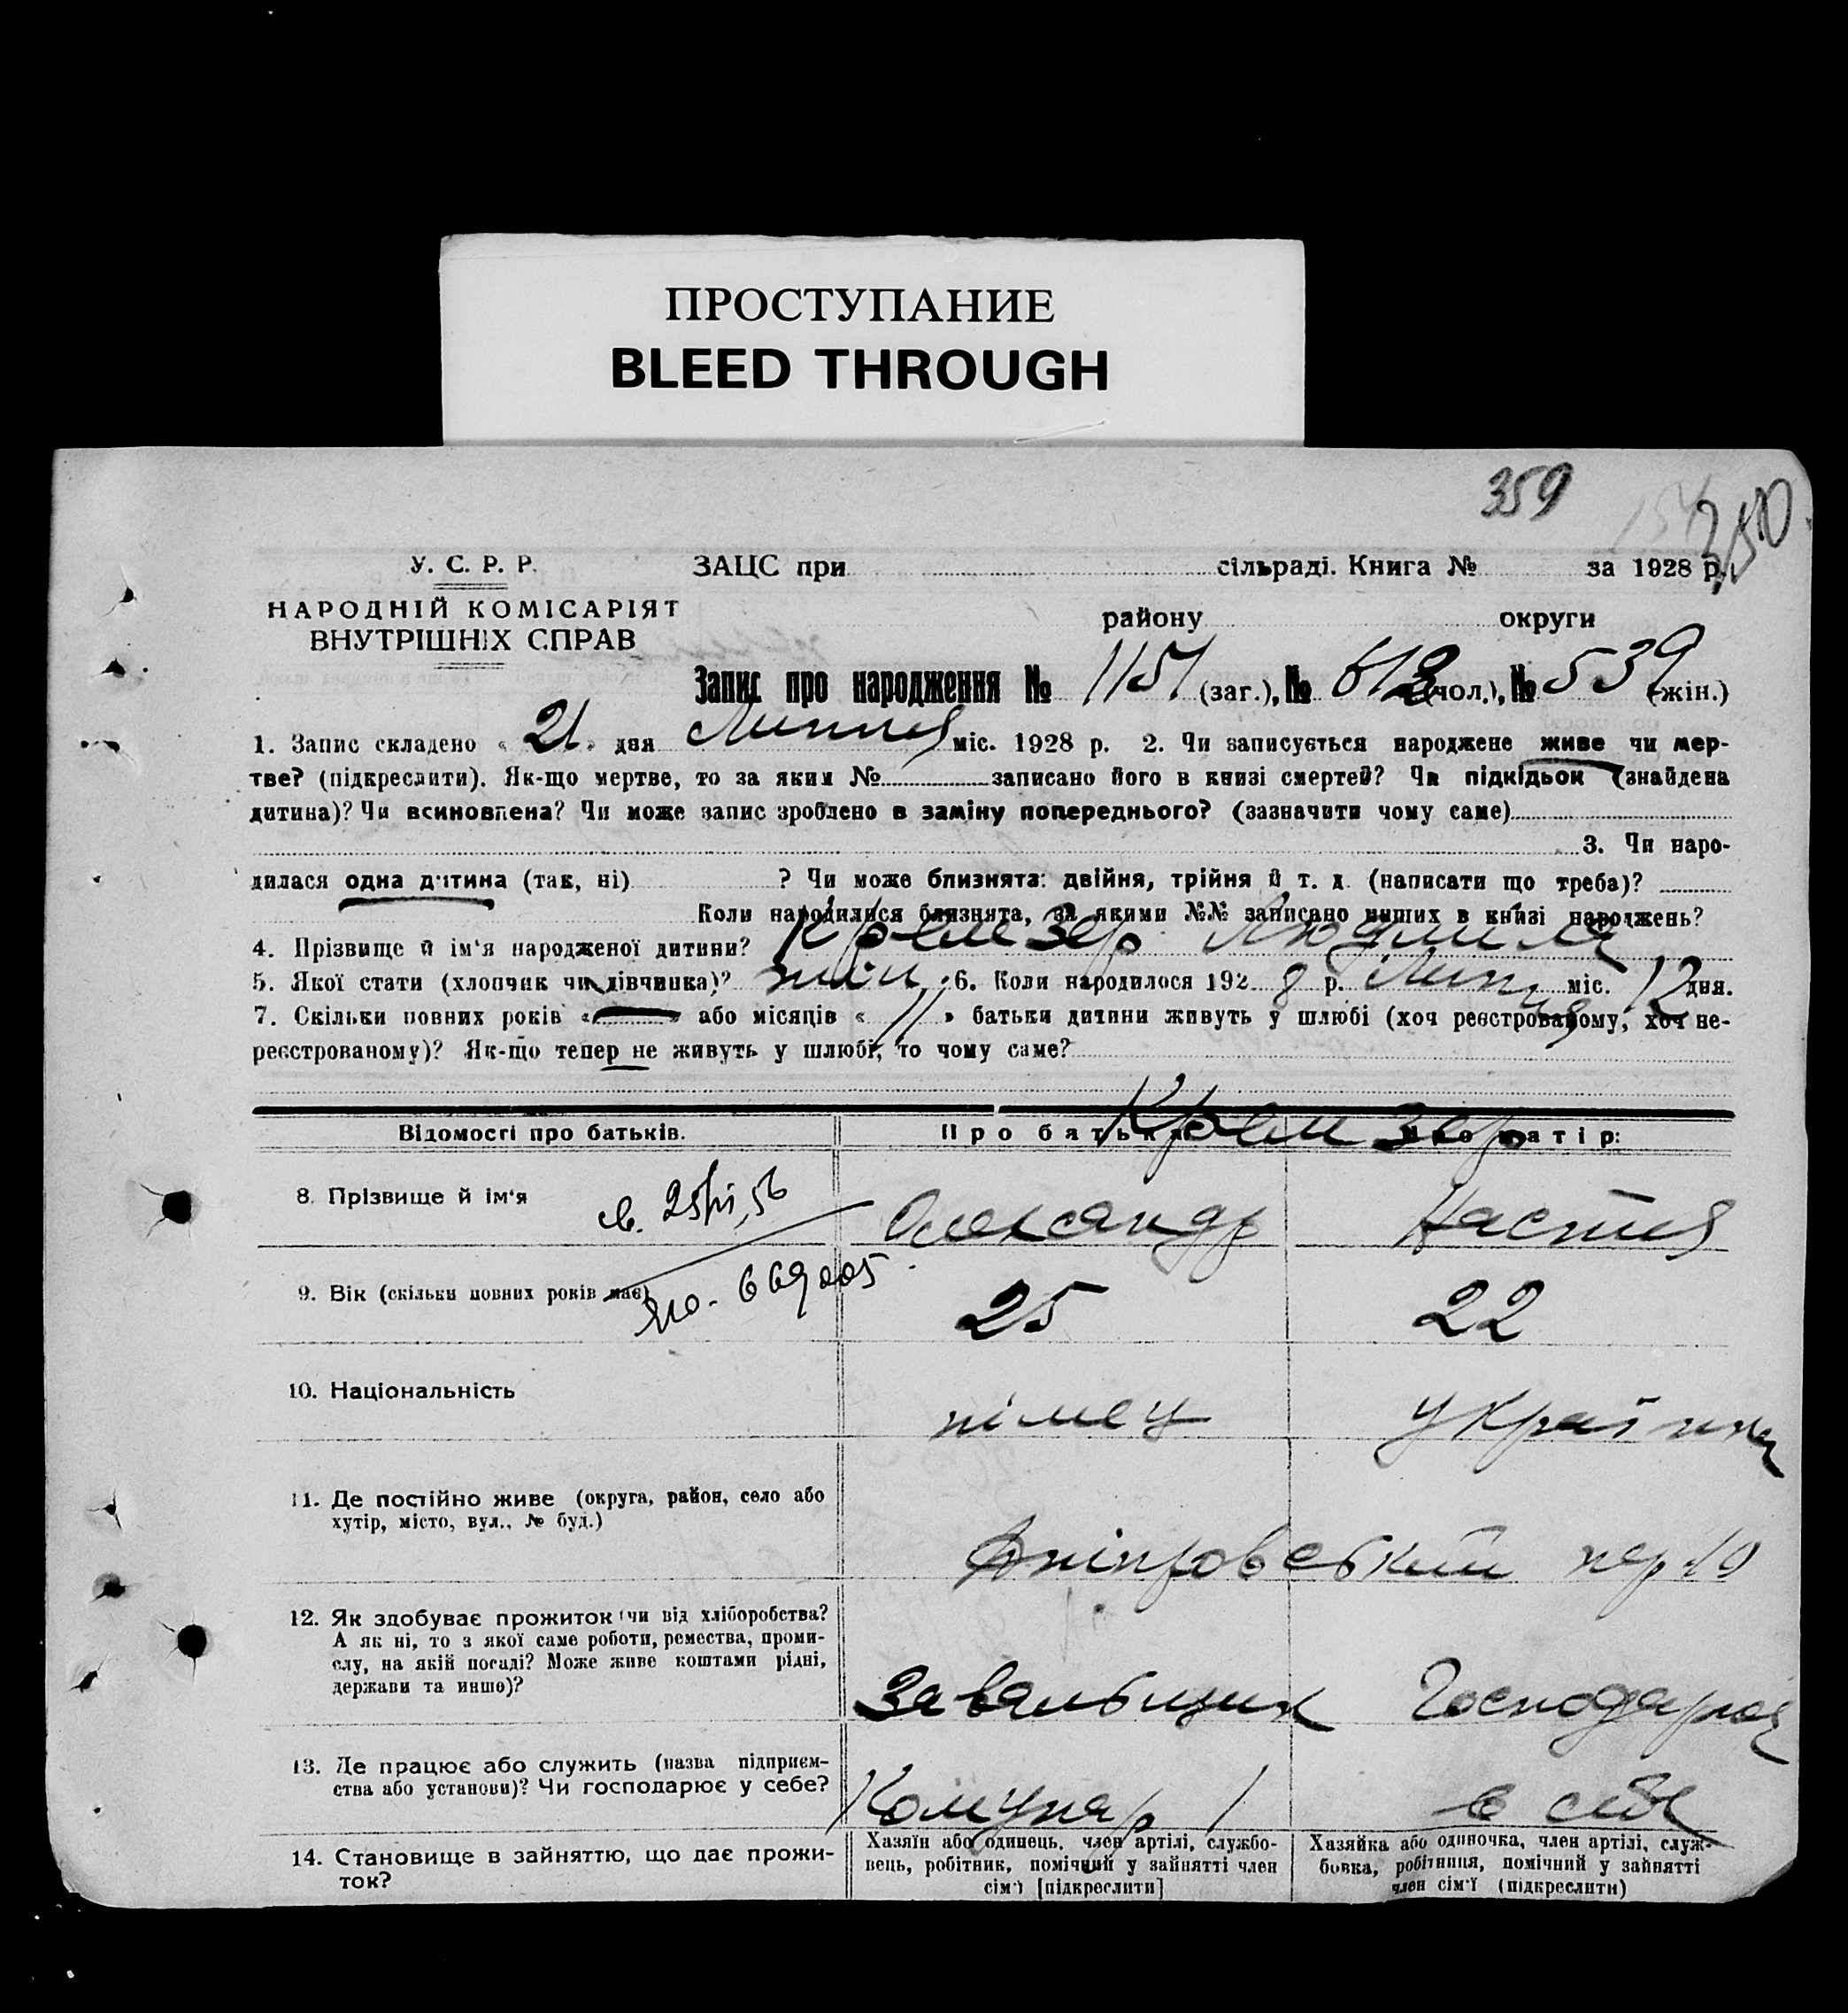 ПРОСТУПАНИЕ
BLEED THROUGH
359
350
У. С. Р. Р. ЗАЦС при сільраді. Книга № за 1928 р.
НАРОДНІЙ КОМІСАРІЯТ
ВНУТРІШНІХ СПРАВ
району округи
Запис про народження № 1151 (заг.), № 612 (чол.), № 539 (жін.)
1. Запис складено « 21 » дня Липня міс. 1928 р. 2. Чи записується народжене живе чи мер-
тве? (підкреслити). Як-що мертве, то за яким № записано його в книзі смертей? Чи підкідьок (знайдена
дитина)? Чи всиновлена? Чи може запис зроблено в заміну попереднього? (зазначити чому саме)
3. Чи наро-
дилася одна дитина (так, ні) ? Чи може близнята: двійня, трійня й т. д. (написати що треба)?
Коли народилися близнята, за якими №№ записано инших в книзі народжень?
4. Прізвище й ім'я народженої дитини? Кремзер Людмила
5. Якої стати (хлопчик чи дівчинка)? жін 6. Коли народилося 192 8 р. Липня міс. 12 дня.
7. Скільки повних років « » або місяців « 11 » батьки дитини живуть у шлюбі (хоч реєстрованому, хоч не-
реєстрованому)? Як-що тепер не живуть у шлюбі, то чому саме?
Кремзер
Відомості про батьків. Про батька: Про матір:
8. Прізвище й ім'я Олександр Настя
9. Вік (скільки повних років має) 25 22
669005
10. Національність німец українка
11. Де постійно живе (округа, район, село або
хутір, місто, вул., № буд.)
Дніпровський пер 10
12. Як здобуває прожиток (чи від хліборобства?
А як ні, то з якої саме роботи, ремества, проми-
слу, на якій посаді? Може живе коштами рідні,
держави та инше)?
Завальщик Господарює
13. Де працює або служить (назва підприєм-
ства або установи)? Чи господарює у себе?
Комунар в себе
14. Становище в зайняттю, що дає прожи-
ток?
Хазяїн або одинець, член артілі, службо-
вець, робітник, помічний у зайнятті член
сім'ї [підкреслити]
Хазяйка або одиночка, член артілі, служ-
бовка, робітниця, помічний у зайнятті
член сім'ї (підкреслити)